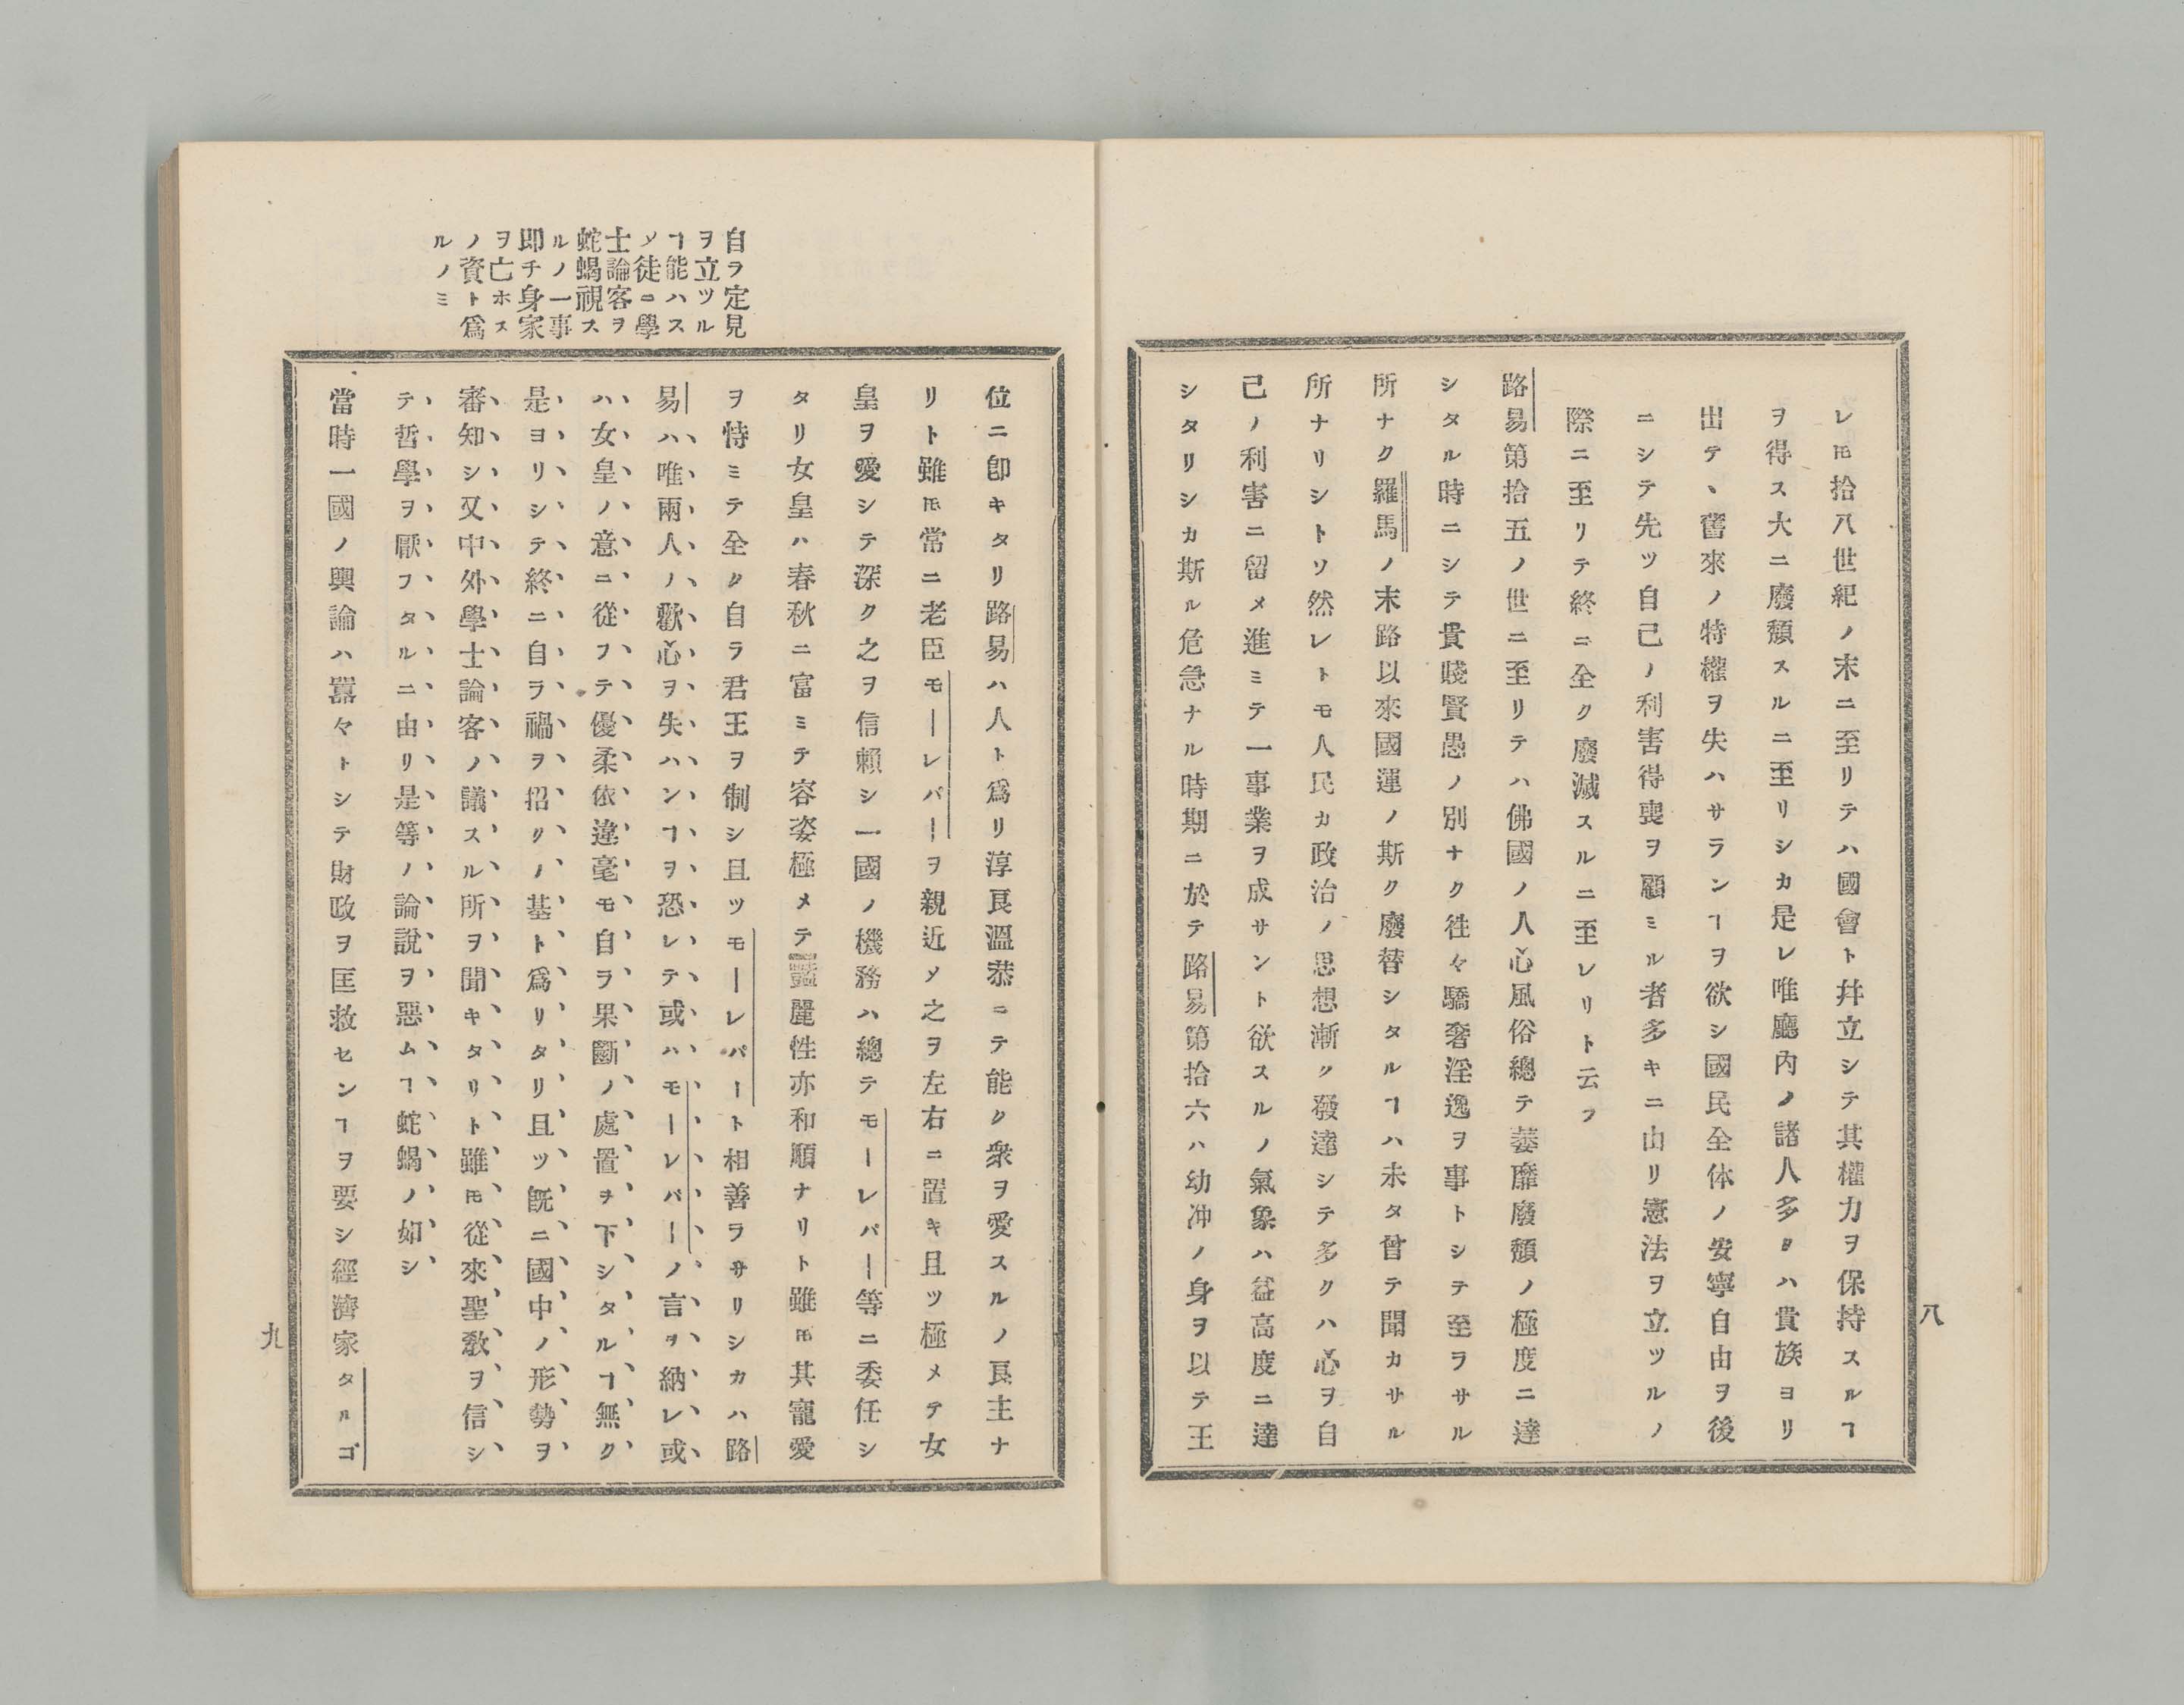 八
レ𪜈拾八世紀ノ末ニ至リテハ國會ト幷立シテ其權力ヲ保持スルヿ
ヲ得ス大ニ廢頽スルニ至リシカ是レ唯廳內ノ諸人多クハ貴族ヨリ
出テ、舊來ノ特權ヲ失ハサランヿヲ欲シ國民全体ノ安寧自由ヲ後
ニシテ先ツ自己ノ利害得喪ヲ顧ミル者多キニ由リ憲法ヲ立ツルノ
際ニ至リテ終ニ全ク廢滅スルニ至レリト云フ
路易第拾五ノ世ニ至リテハ佛國ノ人心風俗總テ萎靡廢頽ノ極度ニ達
シタル時ニシテ貴賤賢愚ノ別ナク徃々驕奢淫逸ヲ事トシテ至ラサル
所ナク羅馬ノ末路以來國運ノ斯ク廢替シタルヿハ未タ曾テ聞カサル
所ナリシトソ然レトモ人民カ政治ノ思想漸ク發達シテ多クハ心ヲ自
己ノ利害ニ留メ進ミテ一事業ヲ成サント欲スルノ氣象ハ益高度ニ達
シタリシカ斯ル危急ナル時期ニ於テ路易第拾六ハ幼冲ノ身ヲ以テ王
位ニ卽キタリ路易ハ人ト爲リ淳良溫恭ニテ能ク衆ヲ愛スルノ良主ナ
リト雖𪜈常ニ老臣モーレパーヲ親近メ之ヲ左右ニ置キ且ツ極メテ女
皇ヲ愛シテ深ク之ヲ信賴シ一國ノ機務ハ總テモーレパー等ニ委任シ
タリ女皇ハ春秋ニ富ミテ容姿極メテ豔麗性亦和順ナリト雖𪜈其寵愛
ヲ恃ミテ全ク自ラ君王ヲ制シ且ツモーレパート相善ラサリシカハ路
易ハ唯兩人ノ歡心ヲ失ハンヿヲ恐レテ或ハモーレパーノ言ヲ納レ或
ハ女皇ノ意ニ從フテ優柔依違毫モ自ラ果斷ノ處置ヲ下シタルヿ無ク
是ヨリシテ終ニ自ラ禍ヲ招クノ基ト爲リタリ且ツ旣ニ國中ノ形勢ヲ
審知シ又中外學士論客ノ議スル所ヲ聞キタリト雖𪜈從來聖敎ヲ信シ
テ哲學ヲ厭フタルニ由リ是等ノ論說ヲ惡ムヿ蛇蝎ノ如シ
當時一國ノ輿論ハ囂々トシテ財政ヲ匡救センヿヲ要シ經濟家タルゴ
自ラ定見
ヲ立ツル
ヿ能ハス
メ徒ニ學
士論客ヲ
蛇蝎視ス
ルノ一事
即チ身家
ヲ亡ホス
ノ資ト爲
ルノミ
九